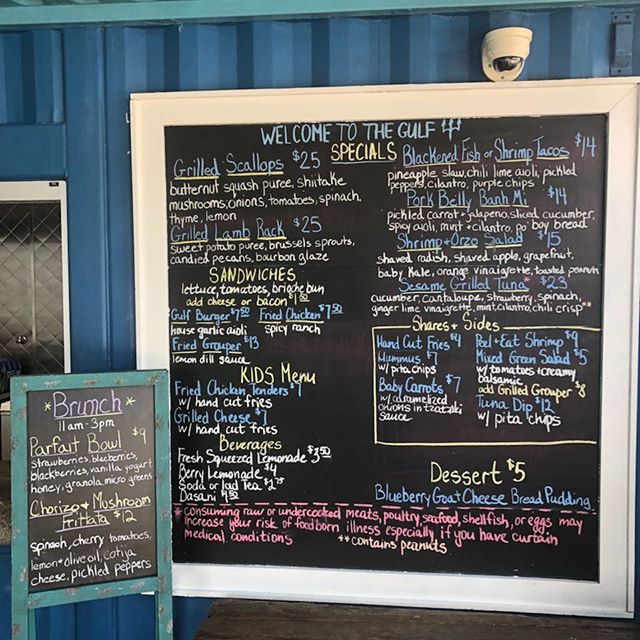 WELCOME TO THE GULF
SPECIALS
Grilled Scallops $25
butternut squash puree, shiitake
mushrooms, onions, tomatoes, spinach,
thyme, lemon
Grilled Lamb Rack $25
sweet potato puree, brussels sprouts,
candied pecans, bourbon glaze
SANDWICHES
lettuce, tomatoes, brioche bun
add cheese or bacon $1.50
Gulf Burger $7.50
house garlic aioli
Fried Chicken $7.50
spicy ranch
Fried Grouper $13
lemon dill sauce
KIDS Menu
Fried Chicken Tenders $7
w/ hand cut fries
Grilled Cheese $7
w/ hand cut fries
Beverages
Fresh Squeezed Lemonade $3.50
Berry Lemonade $4
Soda or Iced Tea $2.75
Dasani
Blackened Fish or Shrimp Tacos $14
pineapple slaw, chili lime aioli, pickled
peppers, cilantro, purple chips
Pork Belly Banh Mi $14
pickled carrot + jalapeno, sliced cucumber,
spicy aioli, mint + cilantro, po boy bread
Shrimp + Orzo Salad $15
shaved radish, shaved apple, grapefruit,
baby kale, orange vinaigrette, toasted peanuts
Sesame Grilled Tuna* $23
cucumber, cantaloupe, strawberry, spinach,
ginger lime vinaigrette, mint, cilantro, chili crisp**
Shares + Sides
Hand Cut Fries $4
Hummus $7
w/ pita chips
Baby Carrots $7
w/ caramelized
onions in tzatziki
sauce
Peel + Eat Shrimp $9
Mixed Green Salad $5
w/ tomatoes + creamy
balsamic
add Grilled Grouper $8
Tuna Dip $12
w/ pita chips
Dessert $5
Blueberry Goat Cheese Bread Pudding
*consuming raw or undercooked meats, poultry, seafood, shellfish, or eggs may
increase your risk of foodborn illness especially if you have curtain
medical conditions
**contains peanuts
*Brunch*
11am-3pm
Parfait Bowl $9
strawberries, blueberries,
blackberries, vanilla yogurt
honey, granola micro greens
Chorizo + Mushroom
Frittata $12
spinach, cherry tomatoes,
lemon + olive oil, cotija
cheese, pickled peppers